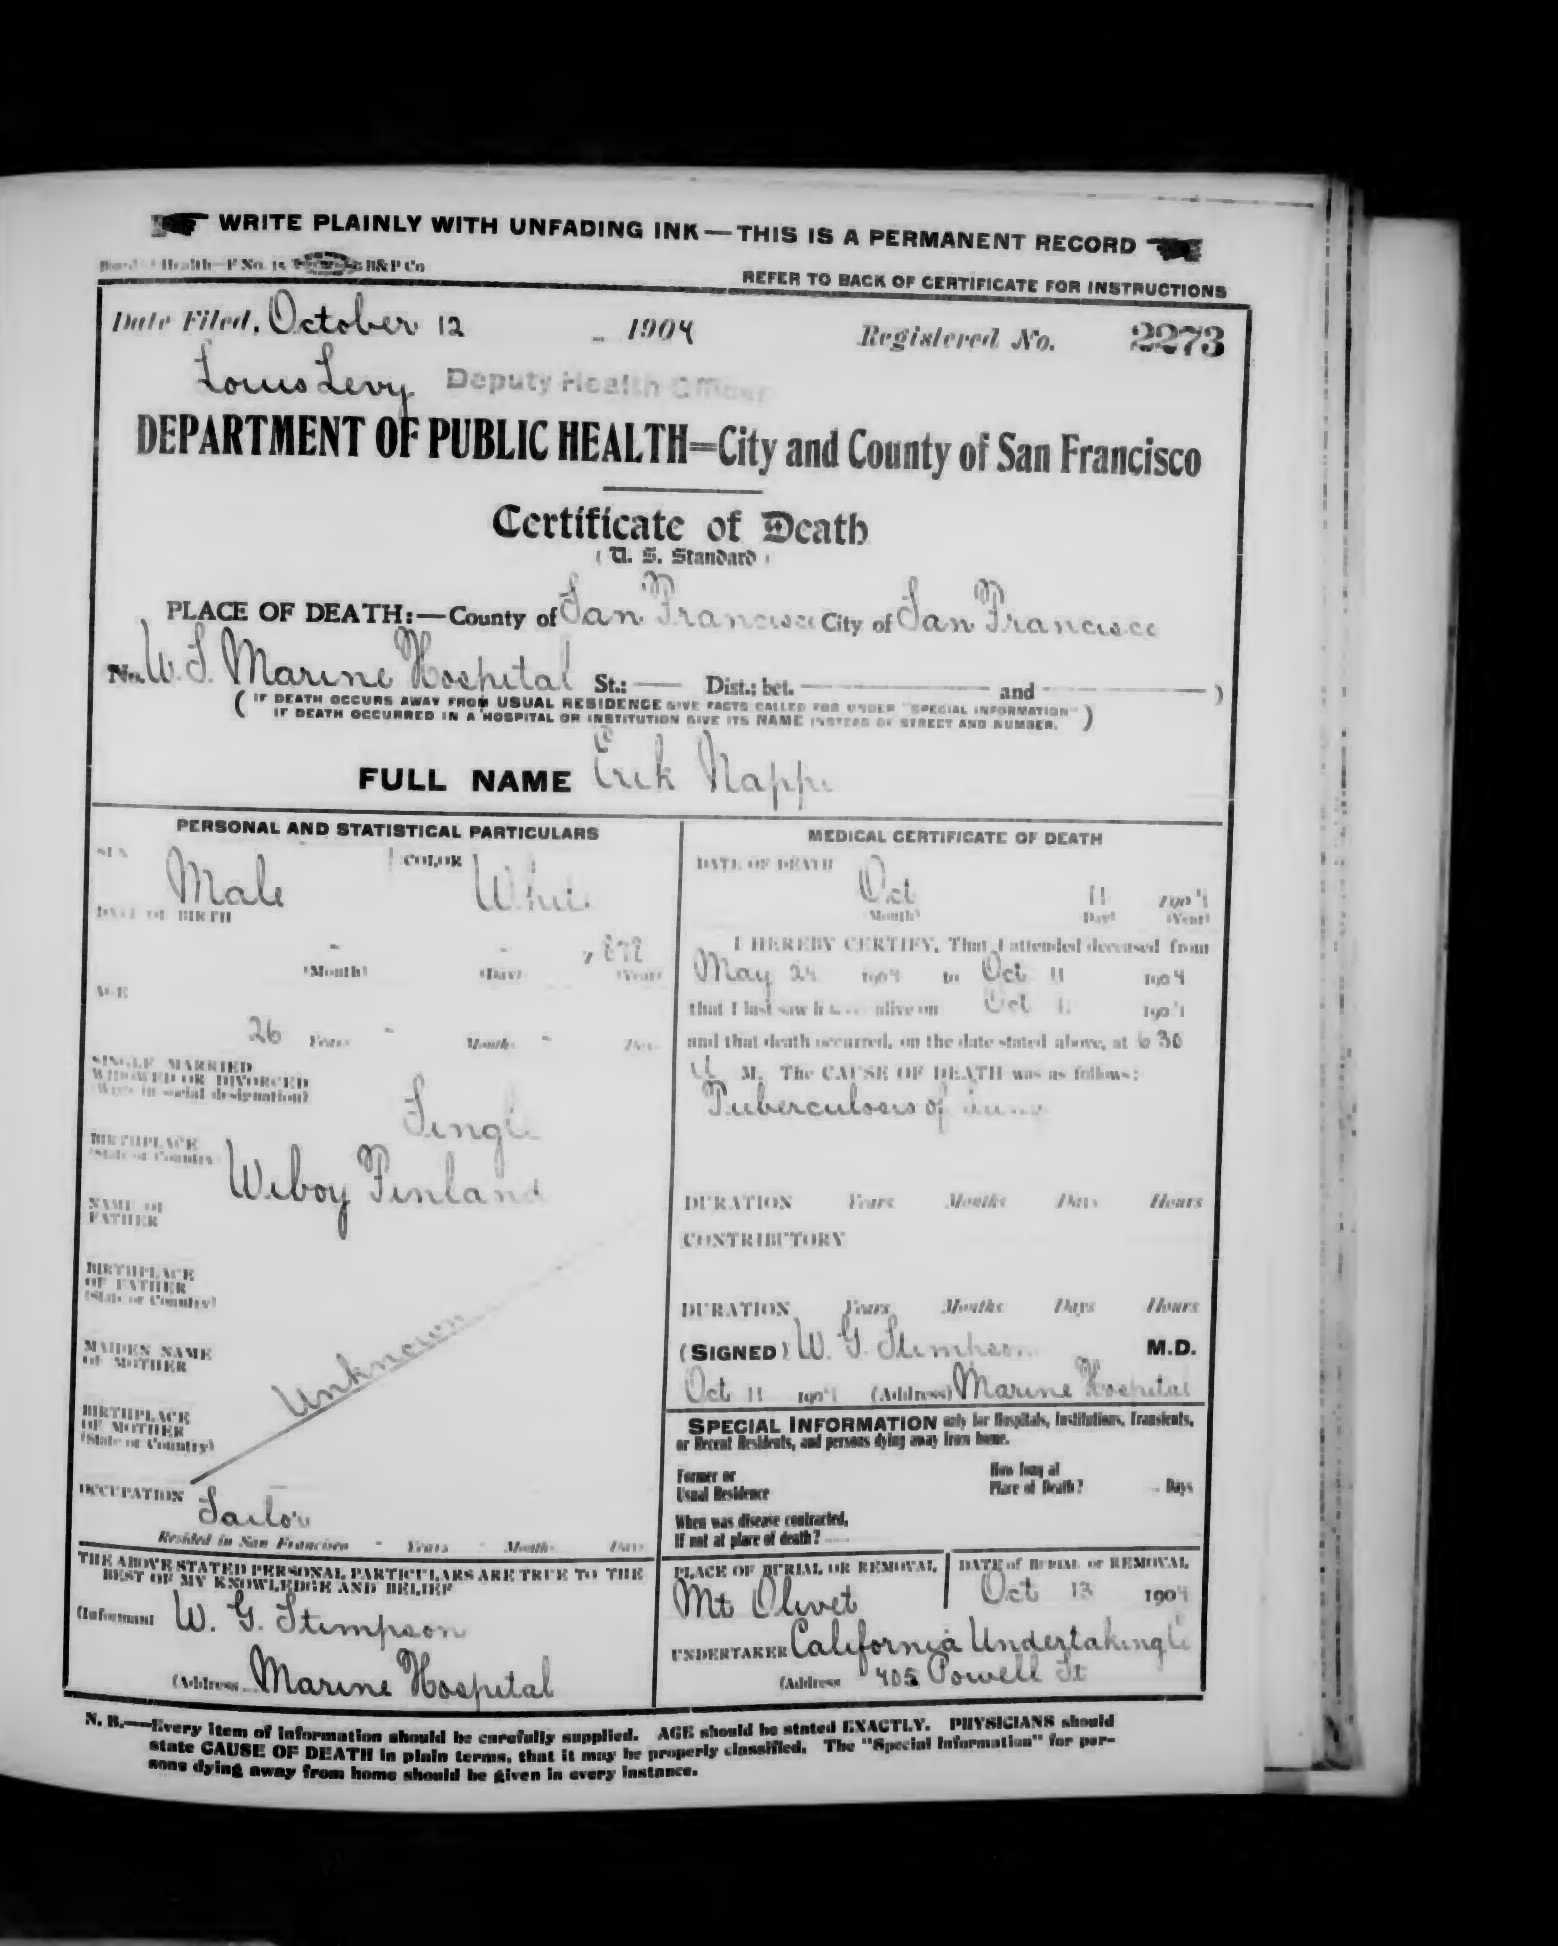 WRITE PLAINLY WITH UNFADING INK—THIS IS A PERMANENT RECORD
Board of Health—F No. 15 B&P Co
REFER TO BACK OF CERTIFICATE FOR INSTRUCTIONS
Date Filed, October 12 1904 Registered No. 2273
Louis Levy Deputy Health Officer
DEPARTMENT OF PUBLIC HEALTH=City and County of San Francisco
Certificate of Death
(U. S. Standard)
PLACE OF DEATH:—County of San Francisco City of San Francisco
No. U.S. Marine Hospital St.; — Dist.; bet. — and — )
( IF DEATH OCCURS AWAY FROM USUAL RESIDENCE GIVE FACTS CALLED FOR UNDER "SPECIAL INFORMATION"
IF DEATH OCCURRED IN A HOSPITAL OR INSTITUTION GIVE ITS NAME INSTEAD OF STREET AND NUMBER. )
FULL NAME Erik Nappi
PERSONAL AND STATISTICAL PARTICULARS
SEX Male COLOR White
DATE OF BIRTH
- - 1878
(Month) (Day) (Year)
AGE
26 Years - Months - Days
SINGLE MARRIED
WIDOWED OR DIVORCED
(Write in social designation)
Single
BIRTHPLACE
(State or Country)
Wiboy Finland
NAME OF
FATHER
BIRTHPLACE
OF FATHER
(State or Country)
MAIDEN NAME
OF MOTHER
Unknown
BIRTHPLACE
OF MOTHER
(State or Country)
OCCUPATION Sailor
Resided in San Francisco - Years - Months Days
THE ABOVE STATED PERSONAL PARTICULARS ARE TRUE TO THE
BEST OF MY KNOWLEDGE AND BELIEF
(Informant W. G. Stimpson
(Address Marine Hospital
MEDICAL CERTIFICATE OF DEATH
DATE OF DEATH
Oct 11 1904
(Month) (Day) (Year)
I HEREBY CERTIFY, That I attended deceased from
May 24 1904 to Oct 11 1904
that I last saw h alive on Oct 11 1904
and that death occurred, on the date stated above, at 6 30
M. The CAUSE OF DEATH was as follows:
Tuberculosis of Lung
DURATION Years Months Days Hours
CONTRIBUTORY
DURATION Years Months Days Hours
(SIGNED) W. G. Stimpson M.D.
Oct 11 1904 (Address) Marine Hospital
SPECIAL INFORMATION only for Hospitals, Institutions, Transients,
or Recent Residents, and persons dying away from home.
Former or
Usual Residence
How long at
Place of Death? Days
When was disease contracted,
If not at place of death?
PLACE OF BURIAL OR REMOVAL DATE of BURIAL or REMOVAL
Mt Olivet Oct 13 1904
UNDERTAKER California Undertaking Co
(Address 405 Powell St
N. B.—Every item of information should be carefully supplied. AGE should be stated EXACTLY. PHYSICIANS should
state CAUSE OF DEATH in plain terms, that it may be properly classified. The "Special Information" for per-
sons dying away from home should be given in every instance.